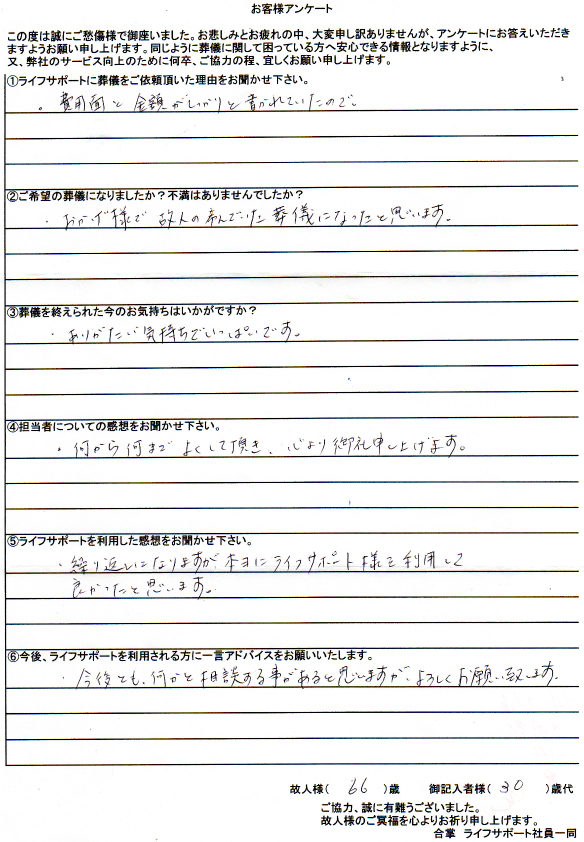 お客様アンケート
この度は誠にご愁傷様で御座いました。お悲しみとお疲れの中、大変申し訳ありませんが、アンケートにお答えいただき
ますようお願い申し上げます。同じように葬儀に関して困っている方へ安心できる情報となりますように、
又、弊社のサービス向上のために何卒、ご協力の程、宜しくお願い申し上げます。
①ライフサポートに葬儀をご依頼頂いた理由をお聞かせ下さい。
・費用面と金額がしっかりと書かれていたので。
②ご希望の葬儀になりましたか？不満はありませんでしたか？
・おかげ様で故人の希んでいた葬儀になったと思います。
③葬儀を終えられた今のお気持ちはいかがですか？
・ありがたい気持ちでいっぱいです。
④担当者についての感想をお聞かせ下さい。
・何から何までよくして頂き、心より御礼申し上げます。
⑤ライフサポートを利用した感想をお聞かせ下さい。
・繰り返しになりますが、本当にライフサポート様を利用して
良かったと思います。
⑥今後、ライフサポートを利用される方に一言アドバイスをお願いいたします。
・今後とも、何かと相談する事があると思いますが、よろしくお願い致します。
故人様（ 66 ）歳 御記入者様（ 30 ）歳代
ご協力、誠に有難うございました。
故人様のご冥福を心よりお祈り申し上げます。
合掌 ライフサポート社員一同